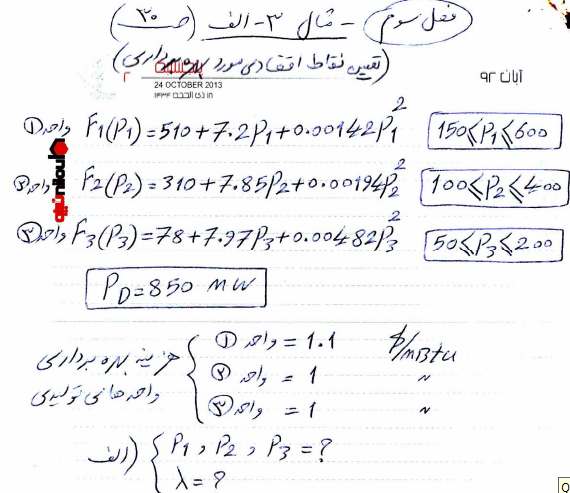 فصل سوم - مثال ۳- الف (ص ۳۰)
(تعیین نقاط اقتصادی مورد بهره برداری)
آبان ۹۲
24 OCTOBER 2013
۱۴۳۴ ذی الحجه ۱۸
واحد ① F1(P1)=510+7.2P1+0.00142P1² 150≤P1≤600
واحد ② F2(P2)=310+7.85P2+0.00194P2² 100≤P2≤400
واحد ③ F3(P3)=78+7.97P3+0.00482P3² 50≤P3≤200
PD=850 MW
هزینه بهره برداری واحدهای تولیدی
واحد ① = 1.1 $/MBtu
واحد ② = 1 "
واحد ③ = 1 "
الف) P1, P2, P3=?
λ=?